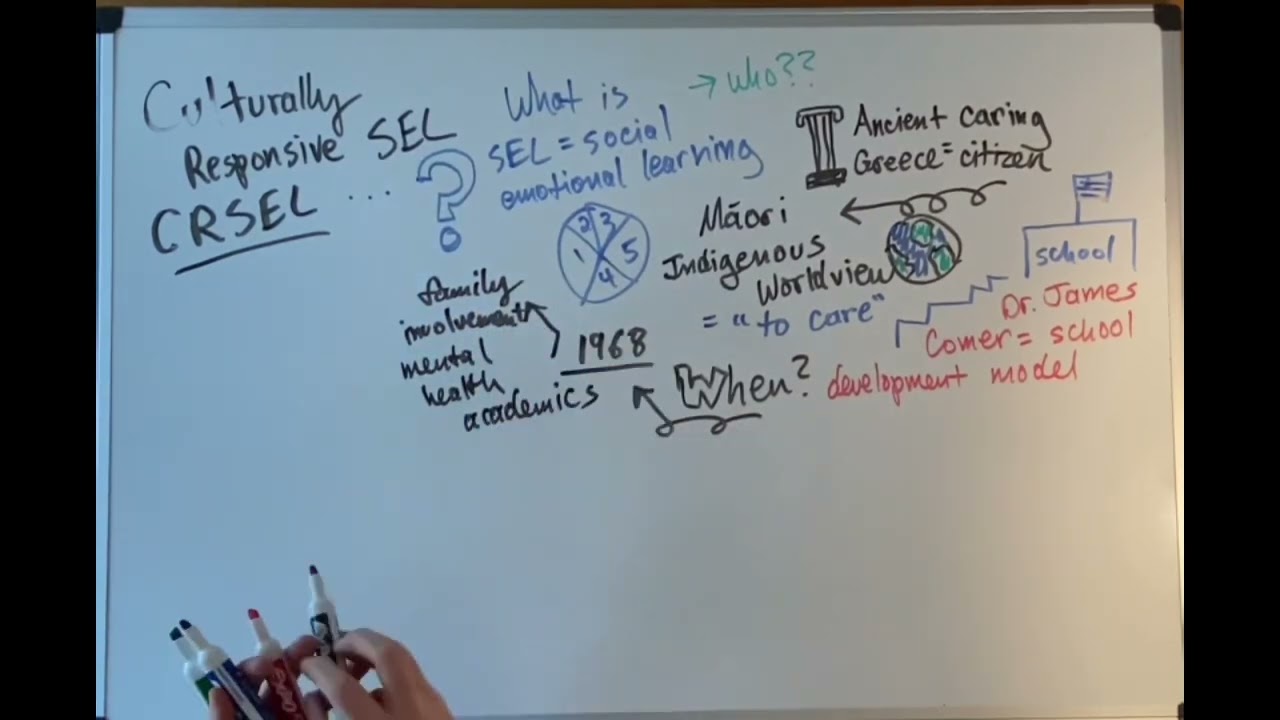 Culturally
Responsive SEL
CRSEL ...
?
What is
SEL = social
emotional learning
→ who??
1
2
3
4
5
Ancient caring
Greece = citizen
Māori
Indigenous
Worldview
= "to care"
school
Dr. James
Comer = school
development model
When?
1968
family
involvement
mental
health
academics
EXPO